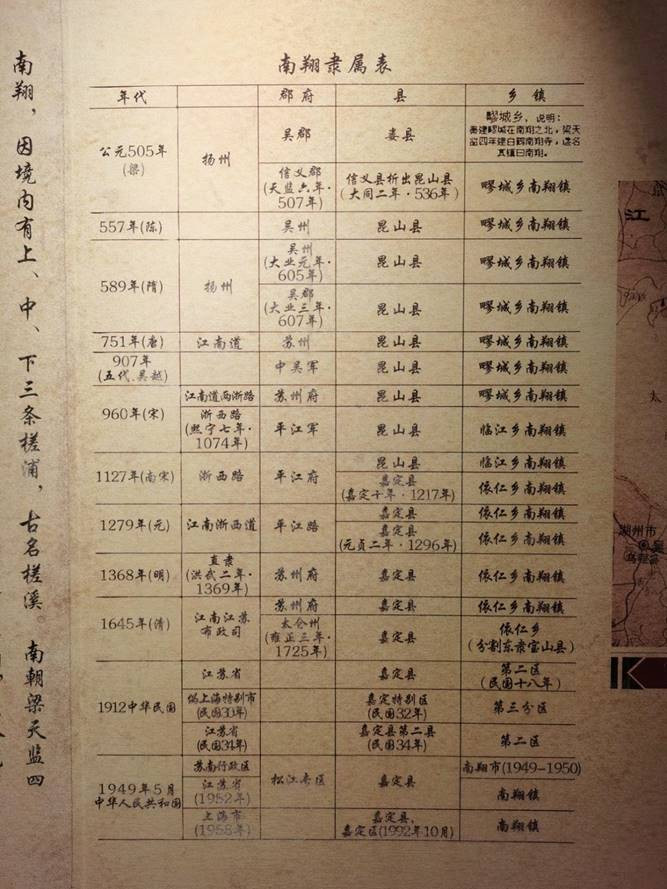 南翔，因境内有上、中、下三条槎浦，古名槎溪。南朝梁天监四
南翔隶属表
年代 郡府 县 乡镇
公元505年(梁) 扬州 吴郡 娄县 疁城乡，说明：
秦建疁城在南翔之北，梁天
监四年建白鹤南翔寺，遂名
其镇曰南翔。
信义郡 信义县析出昆山县 疁城乡南翔镇
(天监六年· (大同二年·536年)
507年)
557年(陈) 吴州 昆山县 疁城乡南翔镇
589年(隋) 扬州 吴州 昆山县 疁城乡南翔镇
(大业元年·
605年)
吴郡 昆山县 疁城乡南翔镇
(大业三年·
607年)
751年(唐) 江南道 苏州 昆山县 疁城乡南翔镇
907年 中吴军 昆山县 疁城乡南翔镇
(五代.吴越)
960年(宋) 江南道两浙路 苏州府 昆山县 疁城乡南翔镇
浙西路 平江军 昆山县 临江乡南翔镇
(熙宁七年·
1074年)
1127年(南宋) 浙西路 平江府 昆山县 临江乡南翔镇
嘉定县 依仁乡南翔镇
(嘉定十年·1217年)
1279年(元) 江南浙西道 平江路 嘉定县 依仁乡南翔镇
嘉定县 依仁乡南翔镇
(元贞二年·1296年)
1368年(明) 直隶 苏州府 嘉定县 依仁乡南翔镇
(洪武二年·
1369年)
1645年(清) 江南江苏 苏州府 嘉定县 依仁乡南翔镇
布政司 太仓州 嘉定县 依仁乡
(雍正三年· (分割东隶宝山县)
1725年)
1912中华民国 江苏省 嘉定县 第二区
(民国十八年)
伪上海特别市 嘉定特别区 第三分区
(民国30年) (民国32年)
江苏省 嘉定县第二县 第二区
(民国34年) (民国34年)
1949年5月 苏南行政区 松江专区 嘉定县 南翔市(1949-1950)
中华人民共和国 江苏省 南翔镇
(1952年)
上海市 嘉定县， 南翔镇
(1958年) 嘉定区(1992年10月)
江
太
湖州市